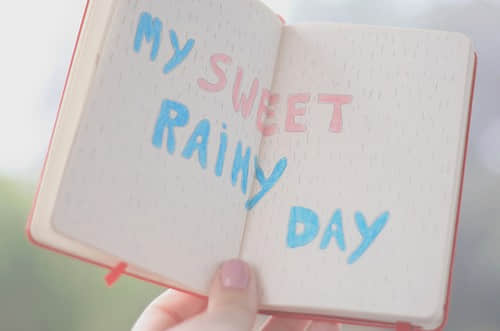 MY SWEET
RAiNY
DAY